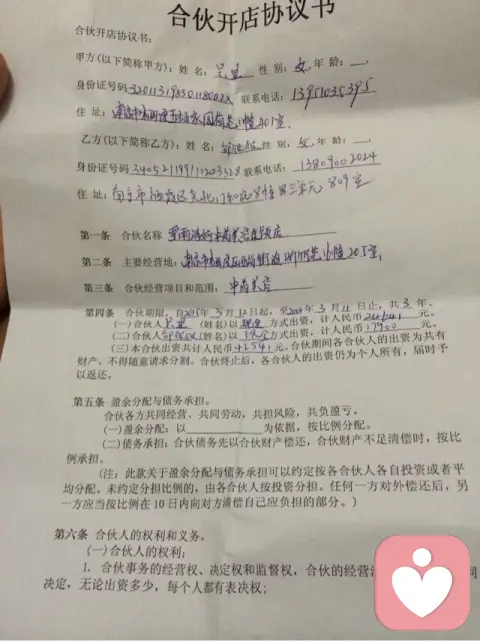 合伙开店协议书
合伙开店协议书:
甲方(以下简称甲方): 姓 名: 性 别: 女 年 龄: __.
身份证号码 联系电话: 13951035395
住 址: 201室.
乙方(以下简称乙方): 姓 名: 性 别: 女. 年 龄:
身份证号码 联系电话: 13809002024
住 址: 南京市栖霞区 第三单元 809室
第一条 合伙名称
第二条 主要经营地: 205室
第三条 合伙经营项目和范围: 中药美容
第四条 合伙期限, 自2015年3月12日起, 至 年3月11日止, 共3年。
(一)合伙人 (姓名)以现金方式出资, 计人民币 元。
(二)合伙人 (姓名)以现金方式出资, 计人民币17900元。
(三)本合伙出资共计人民币42541元。合伙期间各合伙人的出资为共有
财产, 不得随意请求分割。合伙终止后, 各合伙人的出资仍为个人所有, 届时予
以返还。
第五条 盈余分配与债务承担。
合伙各方共同经营、共同劳动, 共担风险, 共负盈亏。
(一)盈余分配: 以____________为依据, 按比例分配。
(二)债务承担: 合伙债务先以合伙财产偿还, 合伙财产不足清偿时, 按比
例承担。
(注: 此款关于盈余分配与债务承担可以约定按各合伙人各自投资或者平
均分配。未约定分担比例的, 由各合伙人按投资分担。任何一方对外偿还后, 另
一方应当按比例在10日内向对方清偿自己应负担的部分。)
第六条 合伙人的权利和义务。
(一)合伙人的权利:
1. 合伙事务的经营权、决定权和监督权, 合伙的经营
决定, 无论出资多少, 每个人都有表决权;